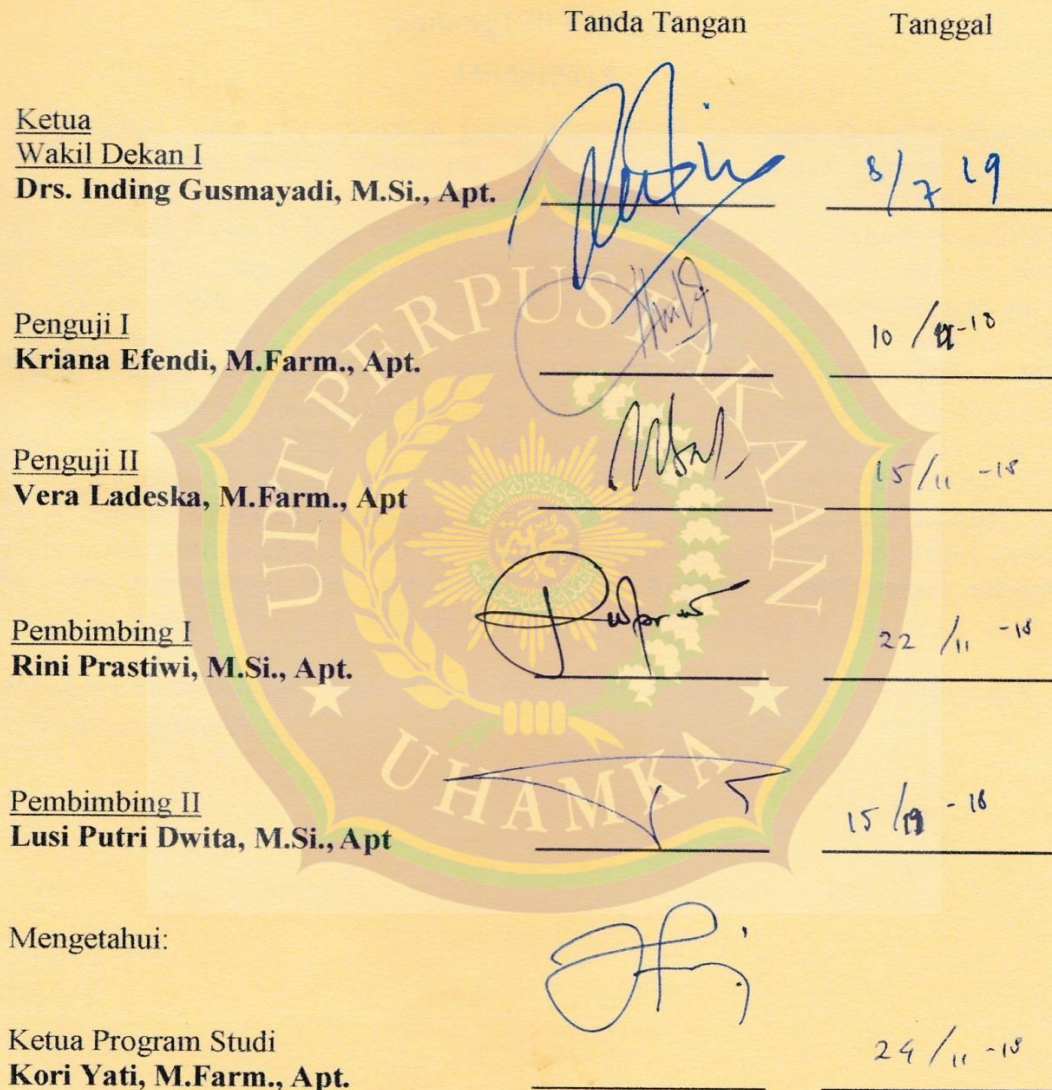 Tanda Tangan Tanggal
Ketua
Wakil Dekan I
Drs. Inding Gusmayadi, M.Si., Apt. 8/7 19
Penguji I
Kriana Efendi, M.Farm., Apt. 10 /
Penguji II
Vera Ladeska, M.Farm., Apt 15/11 -18
Pembimbing I
Rini Prastiwi, M.Si., Apt. 22 /11 -18
Pembimbing II
Lusi Putri Dwita, M.Si., Apt 15/
Mengetahui:
Ketua Program Studi
Kori Yati, M.Farm., Apt. 24 /11 -18
UPT PERPUSTAKAAN
UHAMKA